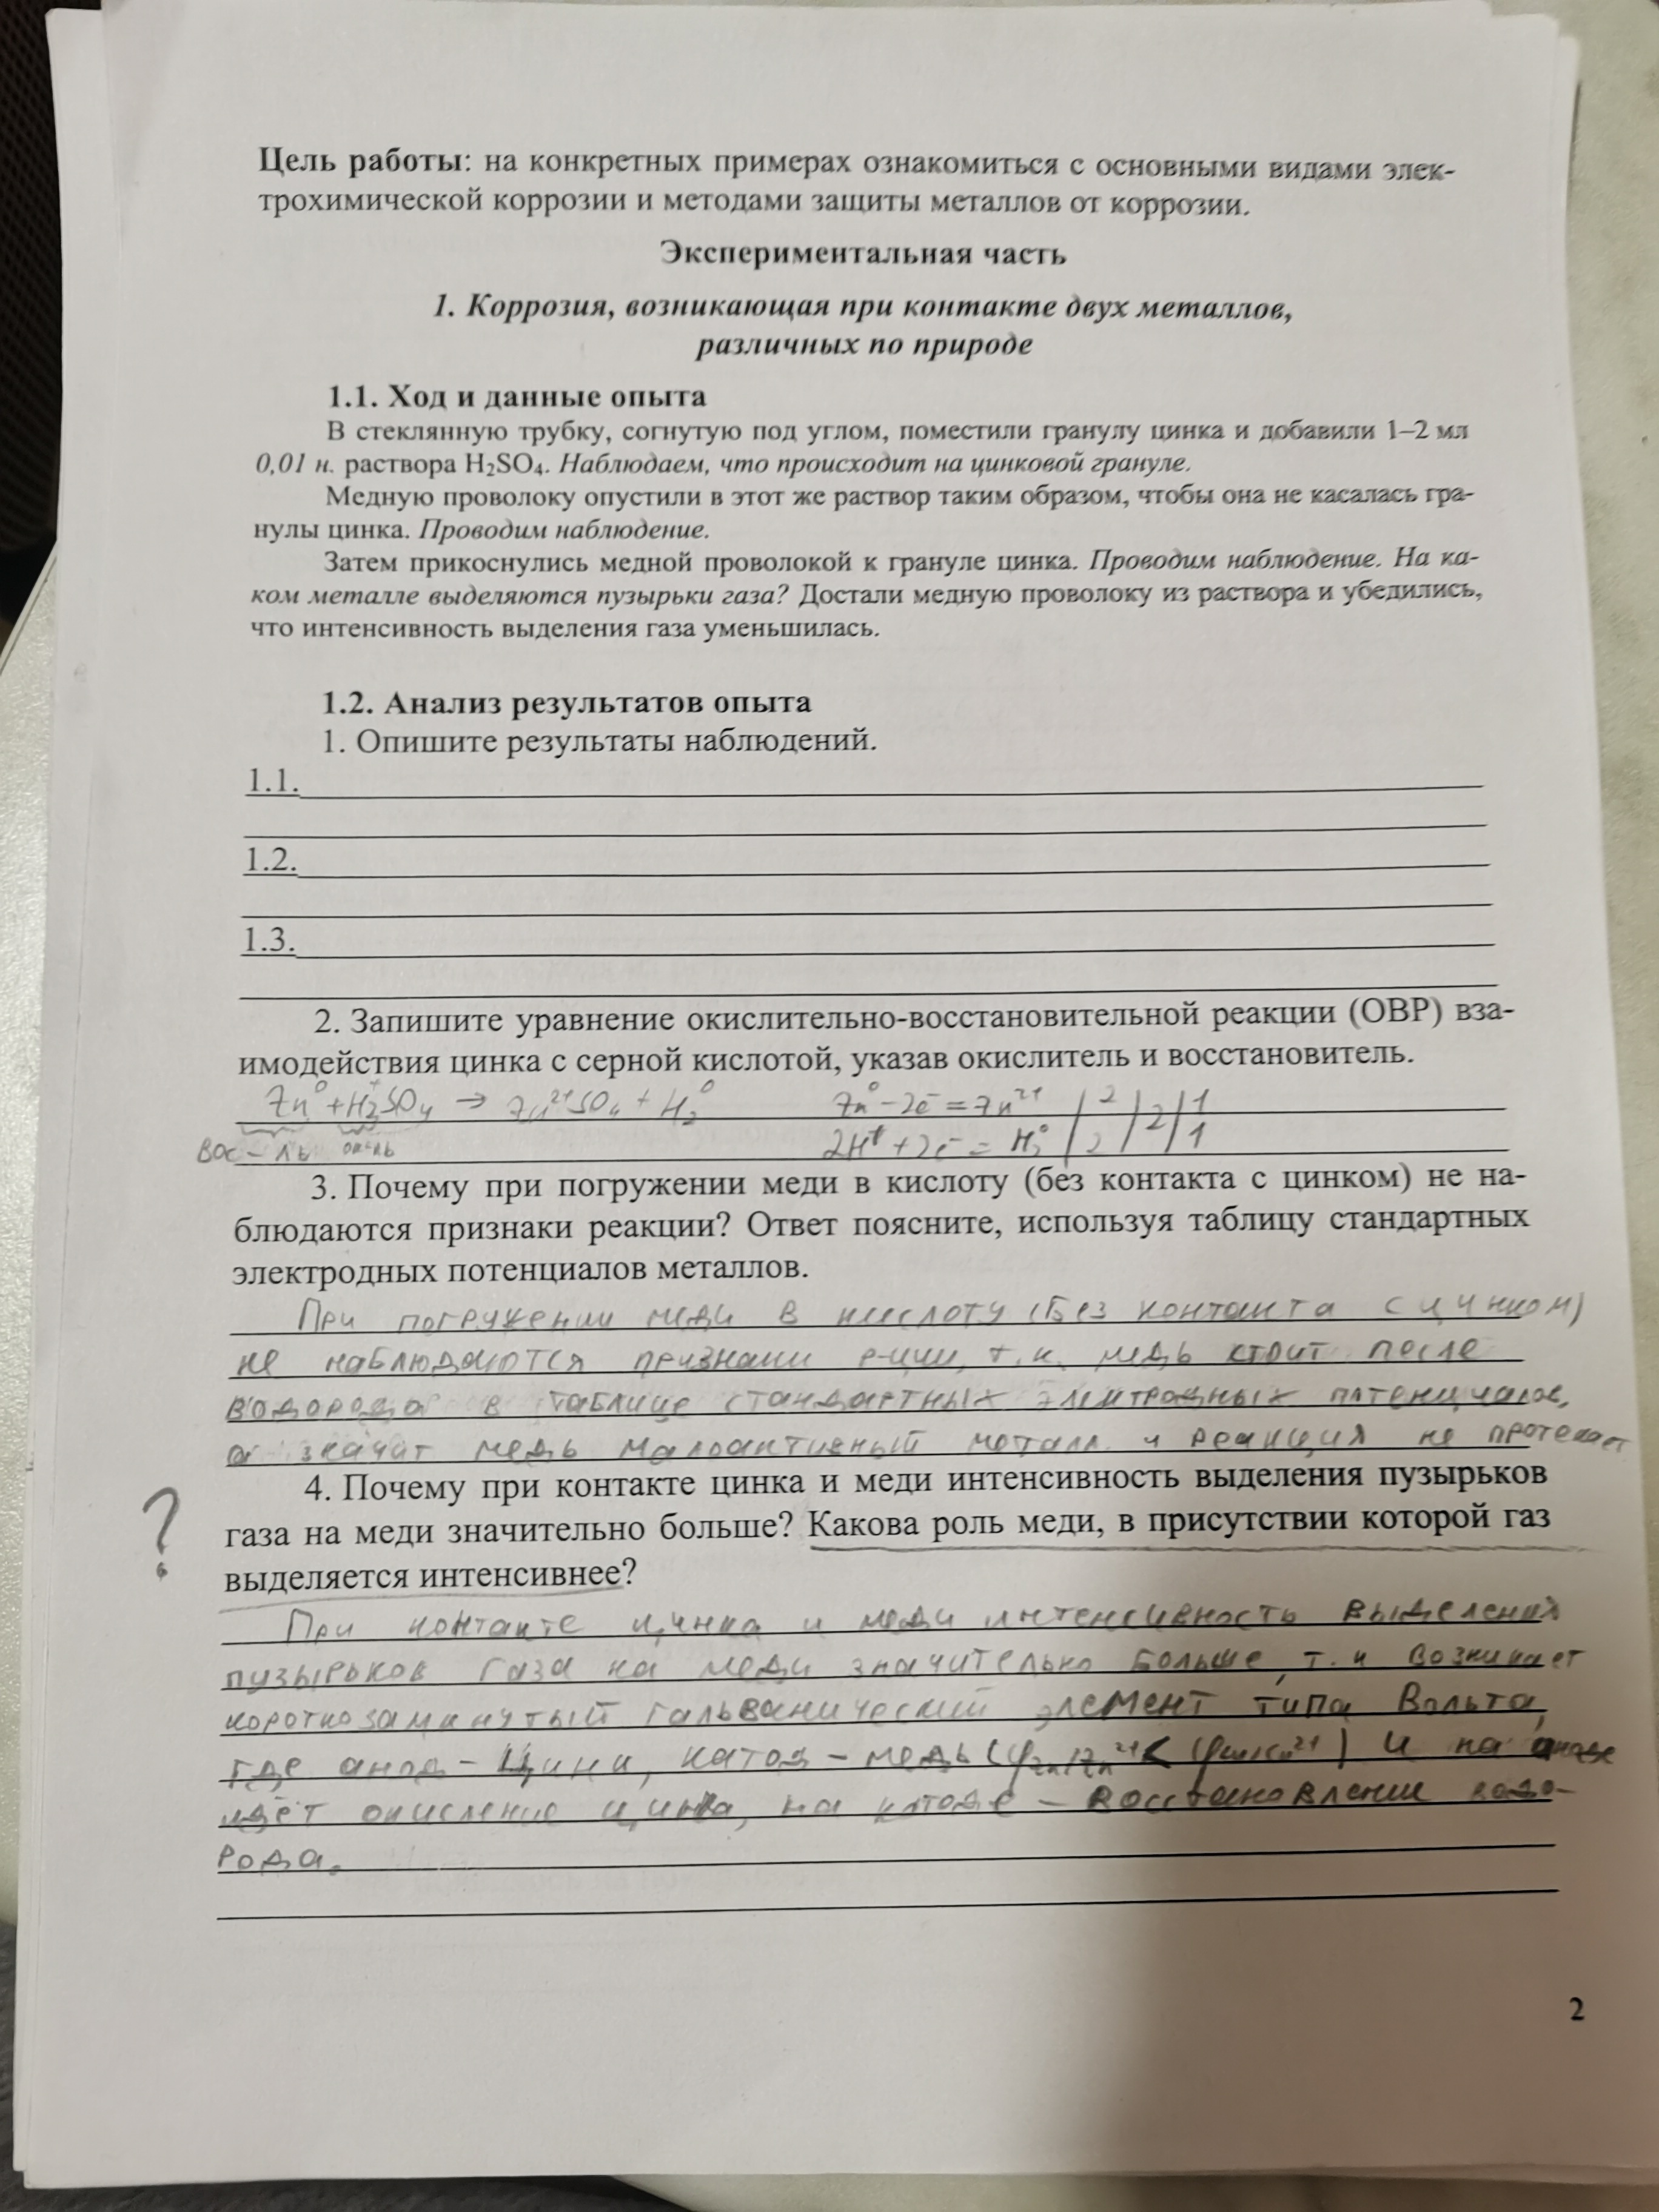 Цель работы: на конкретных примерах ознакомиться с основными видами элек-
трохимической коррозии и методами защиты металлов от коррозии.
Экспериментальная часть
1. Коррозия, возникающая при контакте двух металлов,
различных по природе
1.1. Ход и данные опыта
В стеклянную трубку, согнутую под углом, поместили гранулу цинка и добавили 1–2 мл
0,01 н. раствора H₂SO₄. Наблюдаем, что происходит на цинковой грануле.
Медную проволоку опустили в этот же раствор таким образом, чтобы она не касалась гра-
нулы цинка. Проводим наблюдение.
Затем прикоснулись медной проволокой к грануле цинка. Проводим наблюдение. На ка-
ком металле выделяются пузырьки газа? Достали медную проволоку из раствора и убедились,
что интенсивность выделения газа уменьшилась.
1.2. Анализ результатов опыта
1. Опишите результаты наблюдений.
1.1.
1.2.
1.3.
2. Запишите уравнение окислительно-восстановительной реакции (ОВР) вза-
имодействия цинка с серной кислотой, указав окислитель и восстановитель.
Zn⁰ + H₂⁺SO₄ → Zn²⁺SO₄ + H₂⁰ Zn⁰ – 2e⁻ = Zn²⁺ | 2 | 2 | 1
вос-ль ок-ль 2H⁺ + 2e⁻ = H₂⁰ | 2 | | 1
3. Почему при погружении меди в кислоту (без контакта с цинком) не на-
блюдаются признаки реакции? Ответ поясните, используя таблицу стандартных
электродных потенциалов металлов.
При погружении меди в кислоту (без контакта с цинком)
не наблюдаются признаки р-ции, т.к. медь стоит после
водорода в таблице стандартных электродных потенциалов,
а значит медь малоактивный металл и реакция не протекает
4. Почему при контакте цинка и меди интенсивность выделения пузырьков
? газа на меди значительно больше? Какова роль меди, в присутствии которой газ
выделяется интенсивнее?
При контакте цинка и меди интенсивность выделения
пузырьков газа на меди значительно больше, т.к возникает
короткозамкнутый гальванический элемент типа Вольта,
где анод – цинк, катод – медь (φZn/Zn²⁺ < φCu/Cu²⁺) и на аноде
идёт окисление цинка, на катоде – восстановление водо-
рода.
2